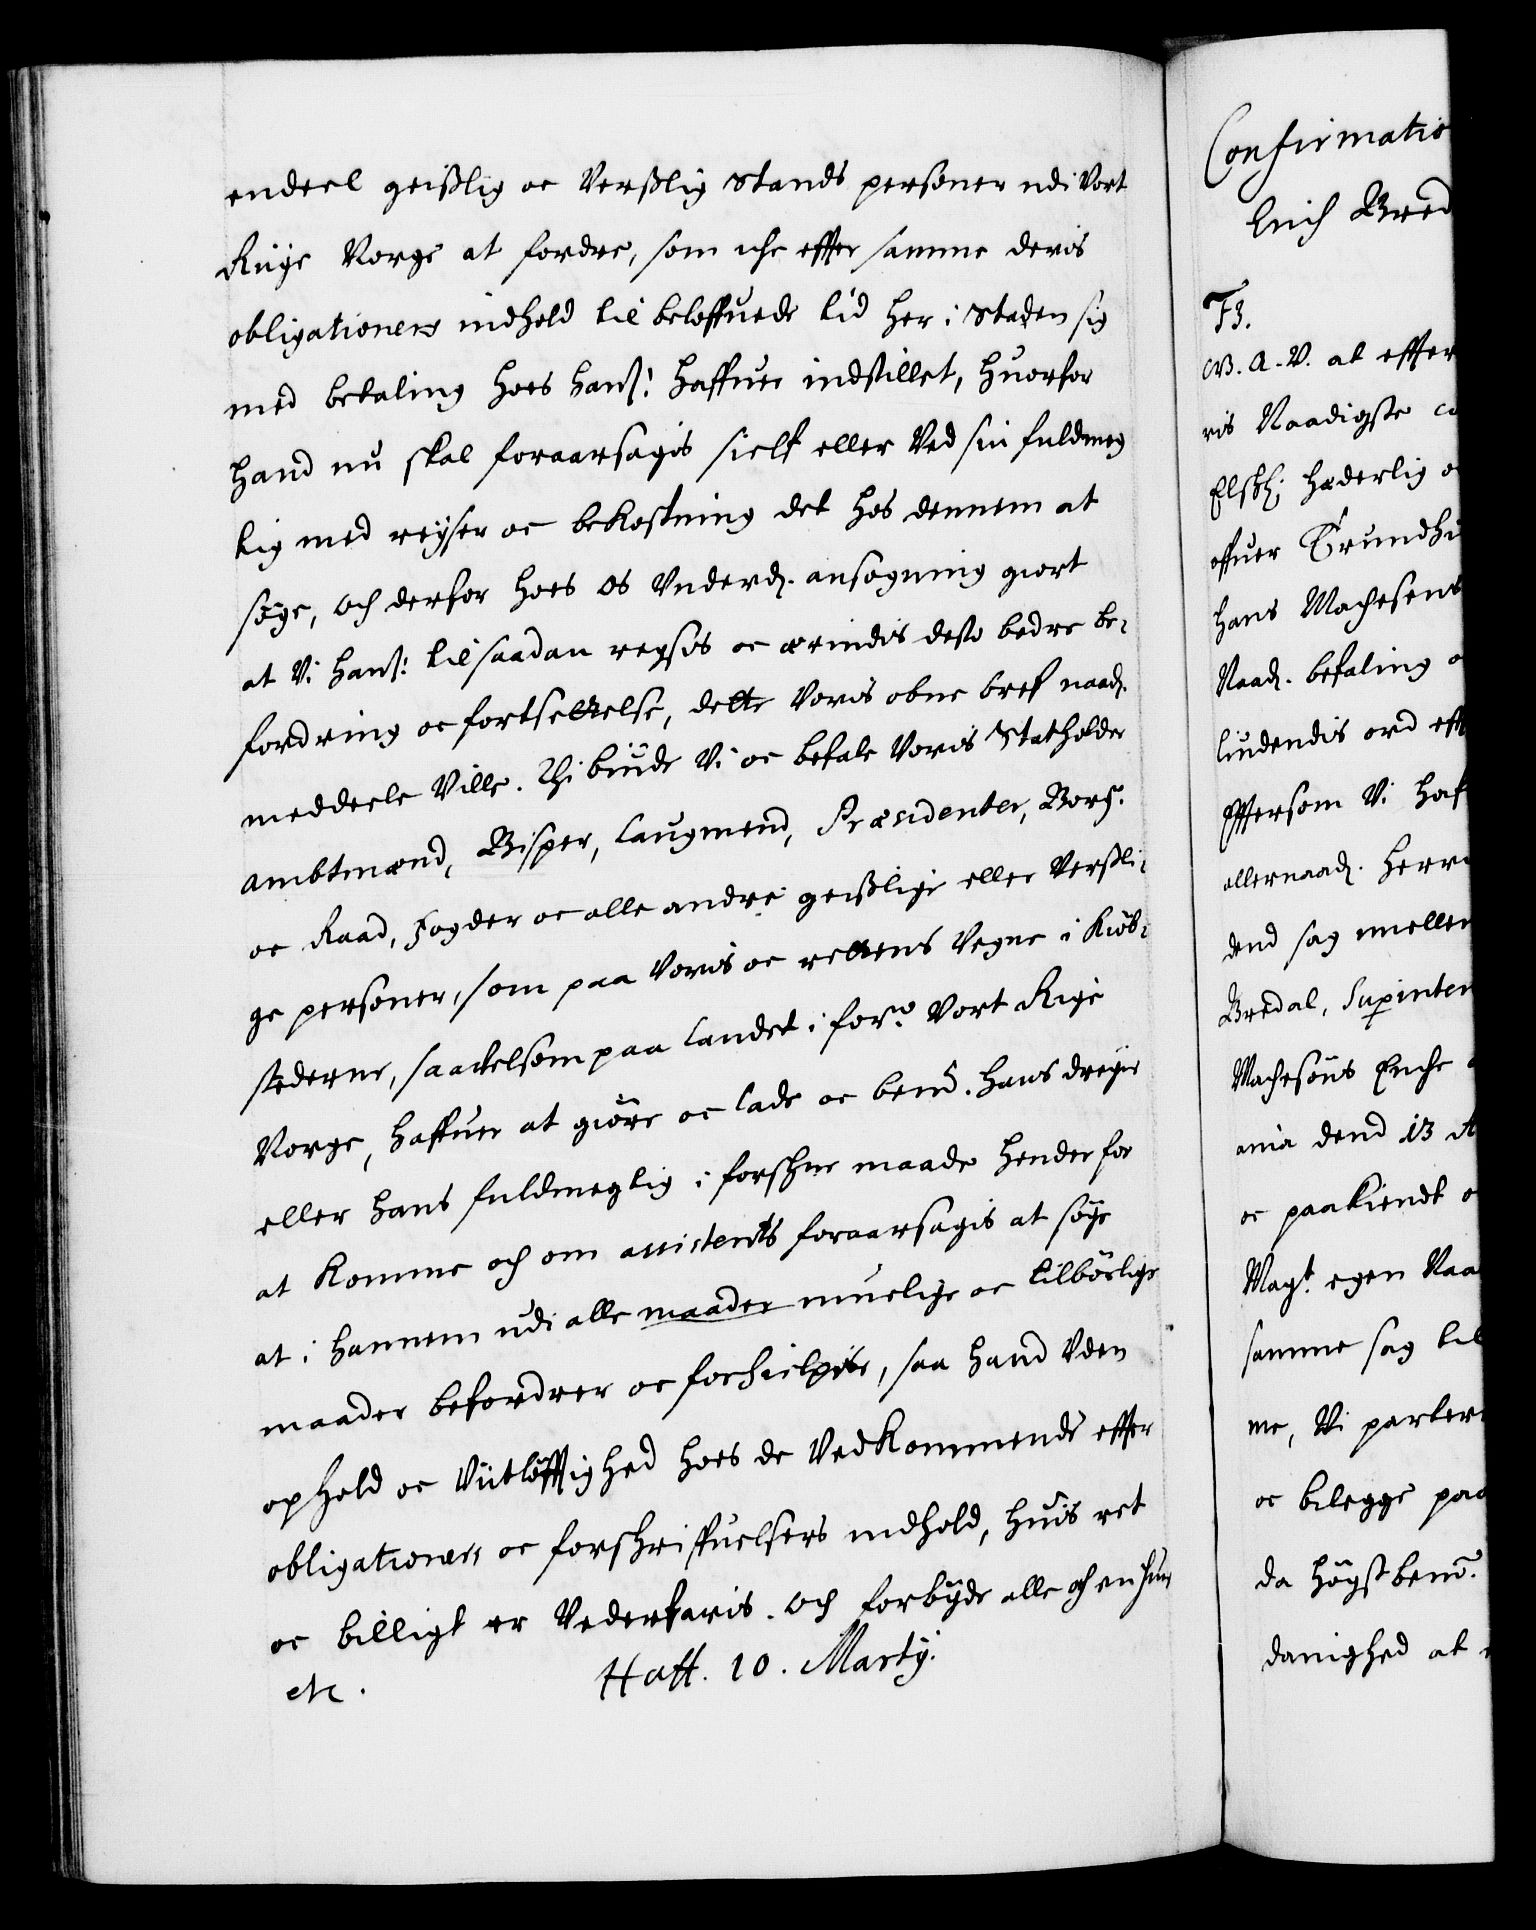 endeel geistlig oc Verslig Stands personer udi Vort
Rüge Norge at fordre, som iche effter samme deris
obligationers indhold til beloffuede tid her i Staden sig
med betaling hoes hanß: haffuer indstillet, huorfor
hand nu skal foraarsagis sielf eller Ved sin fuldmeg
tig med reÿser oc bekostning det hos dennem at
söge, och derfor hoes os Vnderd. ansögning giort
at Vi hanß: til saadan reyses oc ærindis desto bedre be-
fordring oc forttsettelse, dette Voris obne bref naad.
meddeele Ville. Thi biude Vi oc befale Voris Statholder
ambtmænd, Bisper, Laugmend, Præsidenter, Borg.
oc Raad, Fogder oc alle andre geistlige eller Versli-
ge personer, som paa Voris oc rettens Vegne i Kiöb-
stederne, saauelsom paa Landet i for.ne Vort Rige
Norge, haffuer at giöre oc lade oc bem. Hans dreyer
eller hans fuldmegtig i forschne maade hender for
at komme och om assistents foraarsagis at söge
at i hannem udi alle maader muelige oc tilbörlige
maader befordrer oc forhielper, saa hand Vden
ophold oc Viitlöfftighed hoes de Vedkommende effter
obligationers oc forschriffuelsers indhold, huis ret
oc billigt er Vederfaris. Och forbyde alle och enhuer
etc. Haff. 10. Martÿ.
Confirmatio
Erich Bred
F3.
G. A. V. at effter
ris Naadigste
Elskl: Hæderlig o
offuer Trundhi
Hans Machesens
Naad. befaling o
liudendis ord eff
Effersom Vi haf
allernaad. Herr
dend sag mellem
Bredal, Supinten
Machesöns Enche
ania dend 13 A
oc paakiendt o
Mayt. egen Naa
samme sag til
me, Vi parter
oc bilegge paa
da högstbem.
danighed at